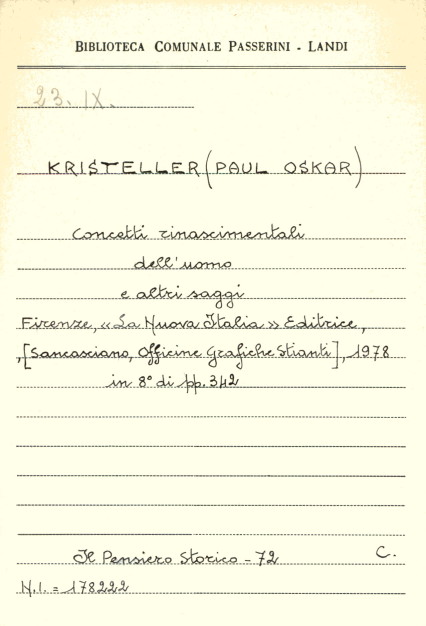 BIBLIOTECA COMUNALE PASSERINI - LANDI
23. IX.
KRISTELLER (PAUL OSKAR)
Concetti rinascimentali
dell'uomo
e altri saggi
Firenze, «La Nuova Italia» Editrice,
,[Sancasciano, Officine Grafiche Stianti], 1978
in 8° di pp. 342
Il Pensiero Storico - 72 C.
N.I. = 178222